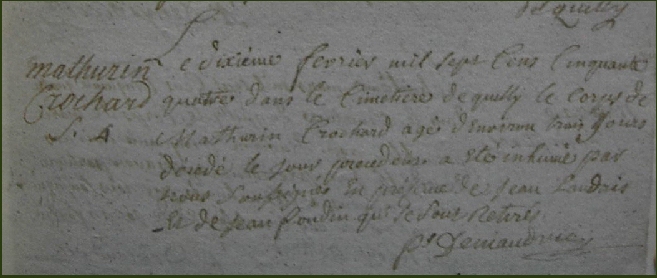 de quilly
mathurin Le dixiéme fevrier mil sept Cens Cinquante
Crochard quatre dans le Cimetiere de quilly le Corps de
S. A Mathurin Crochard agé d'Environ trois Jours
décédé le Jour précédent a eté inhumé par
nous Soussignés En présence de Jean
Et de Jean qui Se Sont Retirés